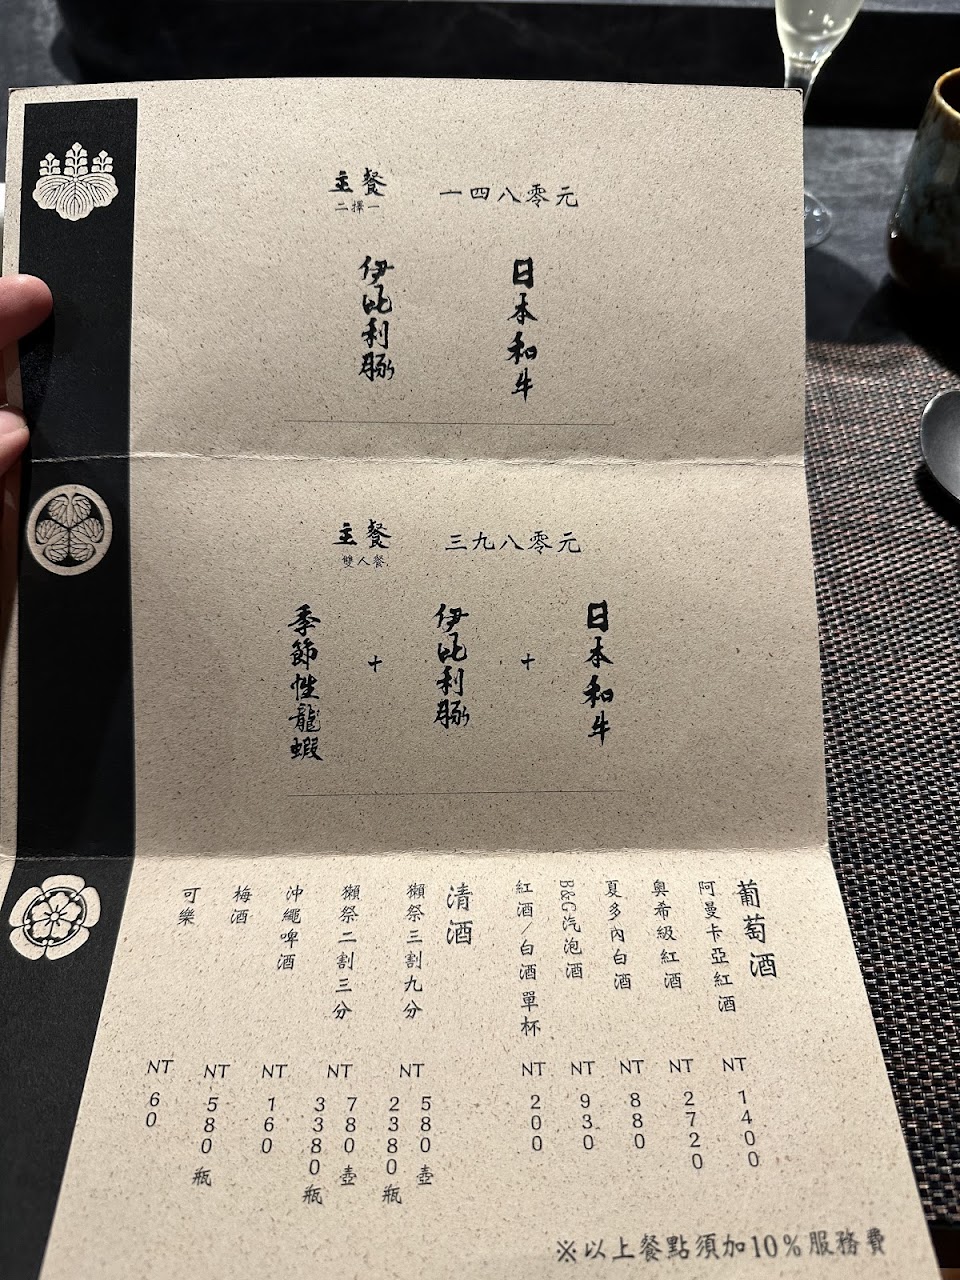 主餐
二擇一
一四八零元
日本和牛
伊比利豚
主餐
雙人餐
三九八零元
日本和牛
+
伊比利豚
+
季節性龍蝦
葡萄酒
阿曼卡亞紅酒
NT 1400
奧希級紅酒
NT 2720
夏多內白酒
NT 880
B&G汽泡酒
NT 930
紅酒/白酒 單杯
NT 200
清酒
獺祭三割九分
NT 580 壺
2380 瓶
獺祭二割三分
NT 780 壺
3380 瓶
沖繩啤酒
NT 160
梅酒
NT 580 瓶
可樂
NT 60
※以上餐點須加10%服務費